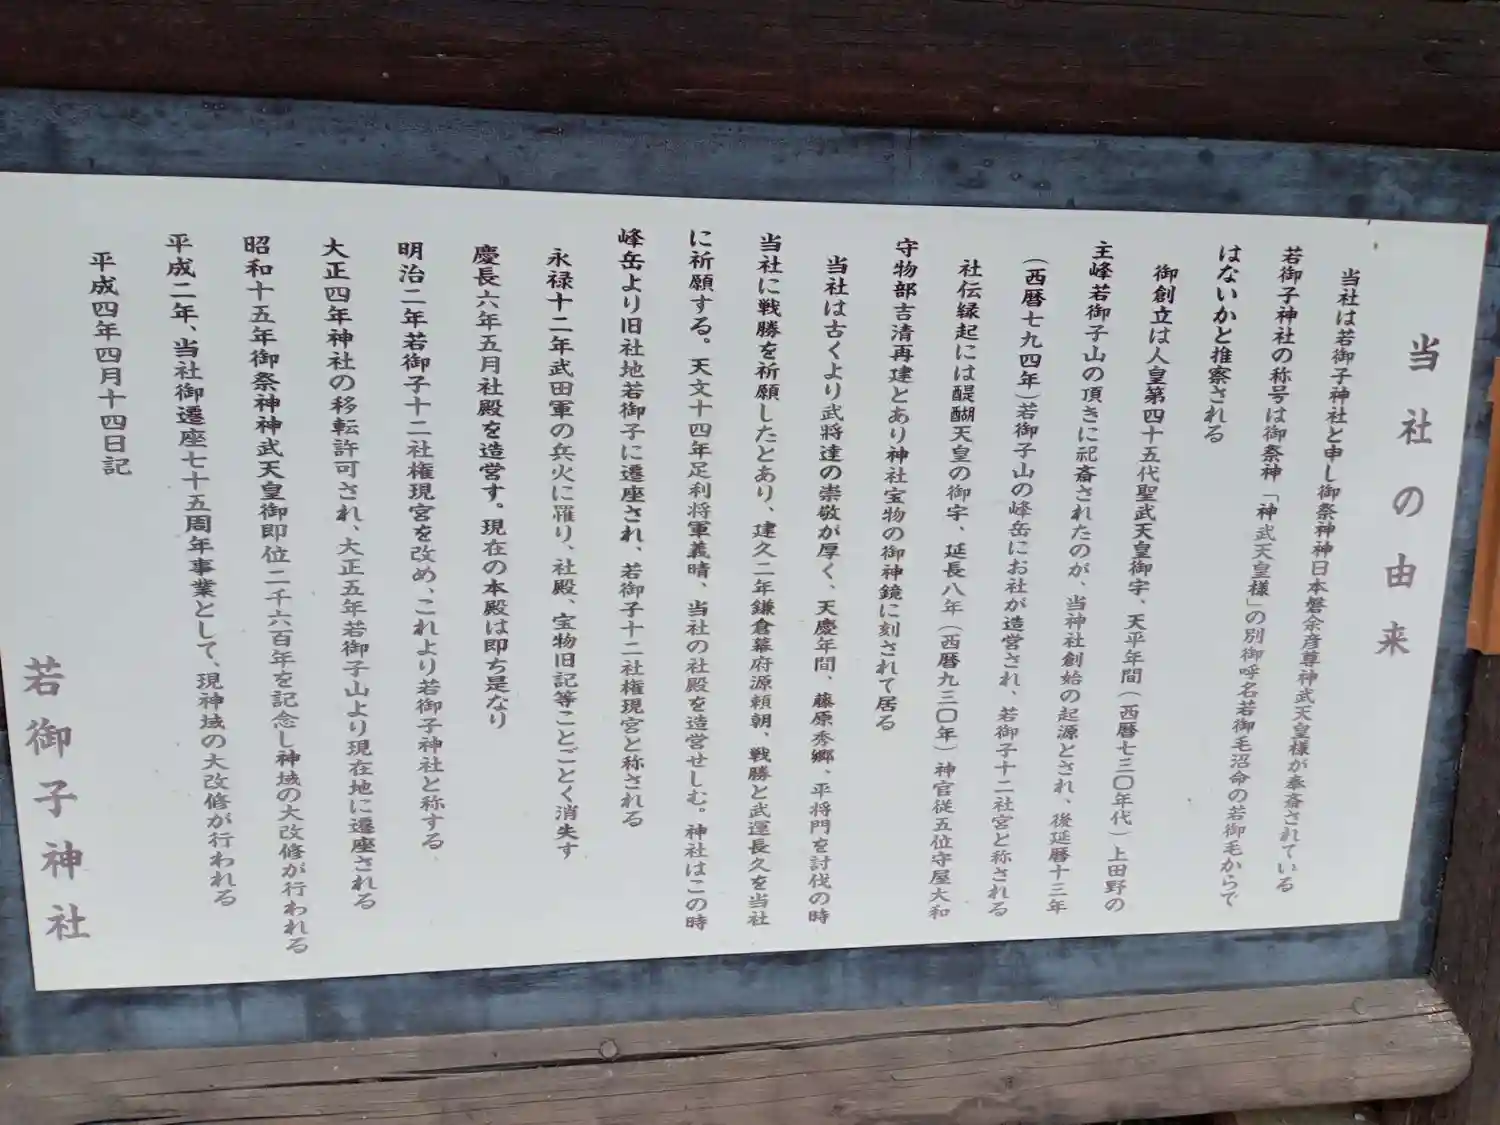 当社の由来
当社は若御子神社と申し御祭神神日本磐余彦尊神武天皇様が奉斎されている
若御子神社の称号は御祭神「神武天皇様」の別御呼名若御毛沼命の若御毛からで
はないかと推察される
御創立は人皇第四十五代聖武天皇御宇、天平年間(西暦七三〇年代)上田野の
主峰若御子山の頂きに祀斎されたのが、当神社創始の起源とされ、後延暦十三年
(西暦七九四年)若御子山の峰岳にお社が造営され、若御子十二社宮と称される
社伝縁起には醍醐天皇の御宇、延長八年(西暦九三〇年)神官従五位守屋大和
守物部吉清再建とあり神社宝物の御神鏡に刻されて居る
当社は古くより武将達の崇敬が厚く、天慶年間、藤原秀郷、平将門を討伐の時
当社に戦勝を祈願したとあり、建久二年鎌倉幕府源頼朝、戦勝と武運長久を当社
に祈願する。天文十四年足利将軍義晴、当社の社殿を造営せしむ。神社はこの時
峰岳より旧社地若御子に遷座され、若御子十二社権現宮と称される
永禄十二年武田軍の兵火に罹り、社殿、宝物旧記等ことごとく消失す
慶長六年五月社殿を造営す。現在の本殿は即ち是なり
明治二年若御子十二社権現宮を改め、これより若御子神社と称する
大正四年神社の移転許可され、大正五年若御子山より現在地に遷座される
昭和十五年御祭神神武天皇御即位二千六百年を記念し神域の大改修が行われる
平成二年、当社御遷座七十五周年事業として、現神域の大改修が行われる
平成四年四月十四日記
若御子神社